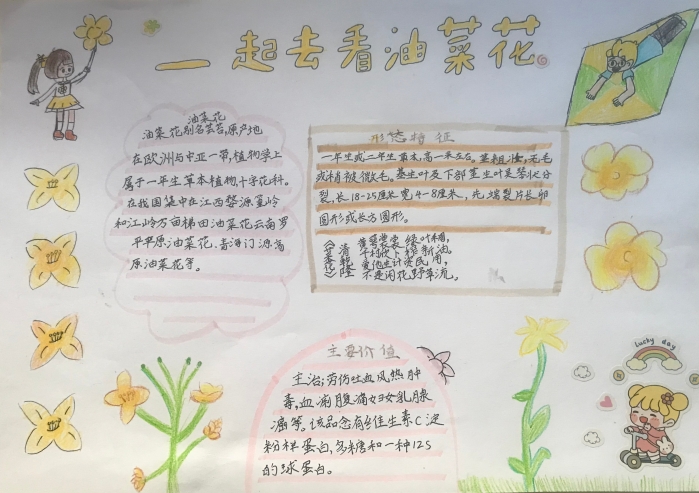 一起去看油菜花
油菜花
油菜花别名芸苔,原产地
在欧洲与中亚一带,植物学上
属于一年生草本植物,十字花科。
在我国集中在江西婺源篁岭
和江岭万亩梯田油菜花云南罗
平平原油菜花、青海门源高
原油菜花等。
形态特征
一年生或二年生草本,高一米左右。茎粗壮,无毛
或稍被微毛。基生叶及下部茎生叶呈琴状分
裂,长18-25厘米宽4-8厘米,先端裂片长卵
圆形或长方圆形。
《菜花》
清 乾隆
黄萼裳裳绿叶稠,
千村欣卜榨新油。
爱他生计资民用,
不是闲花野草流。
主要价值
主治;劳伤吐血风热肿
毒,血痢腹痛妇女乳腺
癌等。该品含有维生素C淀
粉样蛋白,多糖和一种12S
的球蛋白。
lucky day